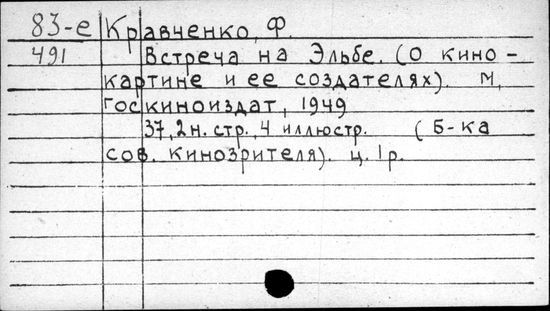 83-е Кравченко, Ф.
491 Встреча на Эльбе. (О кино-
картине и ее создателях). М,
Госкиноиздат, 1949
37, 2 н. стр., 4 иллюстр. (Б-ка
сов. кинозрителя). ц. 1 р.